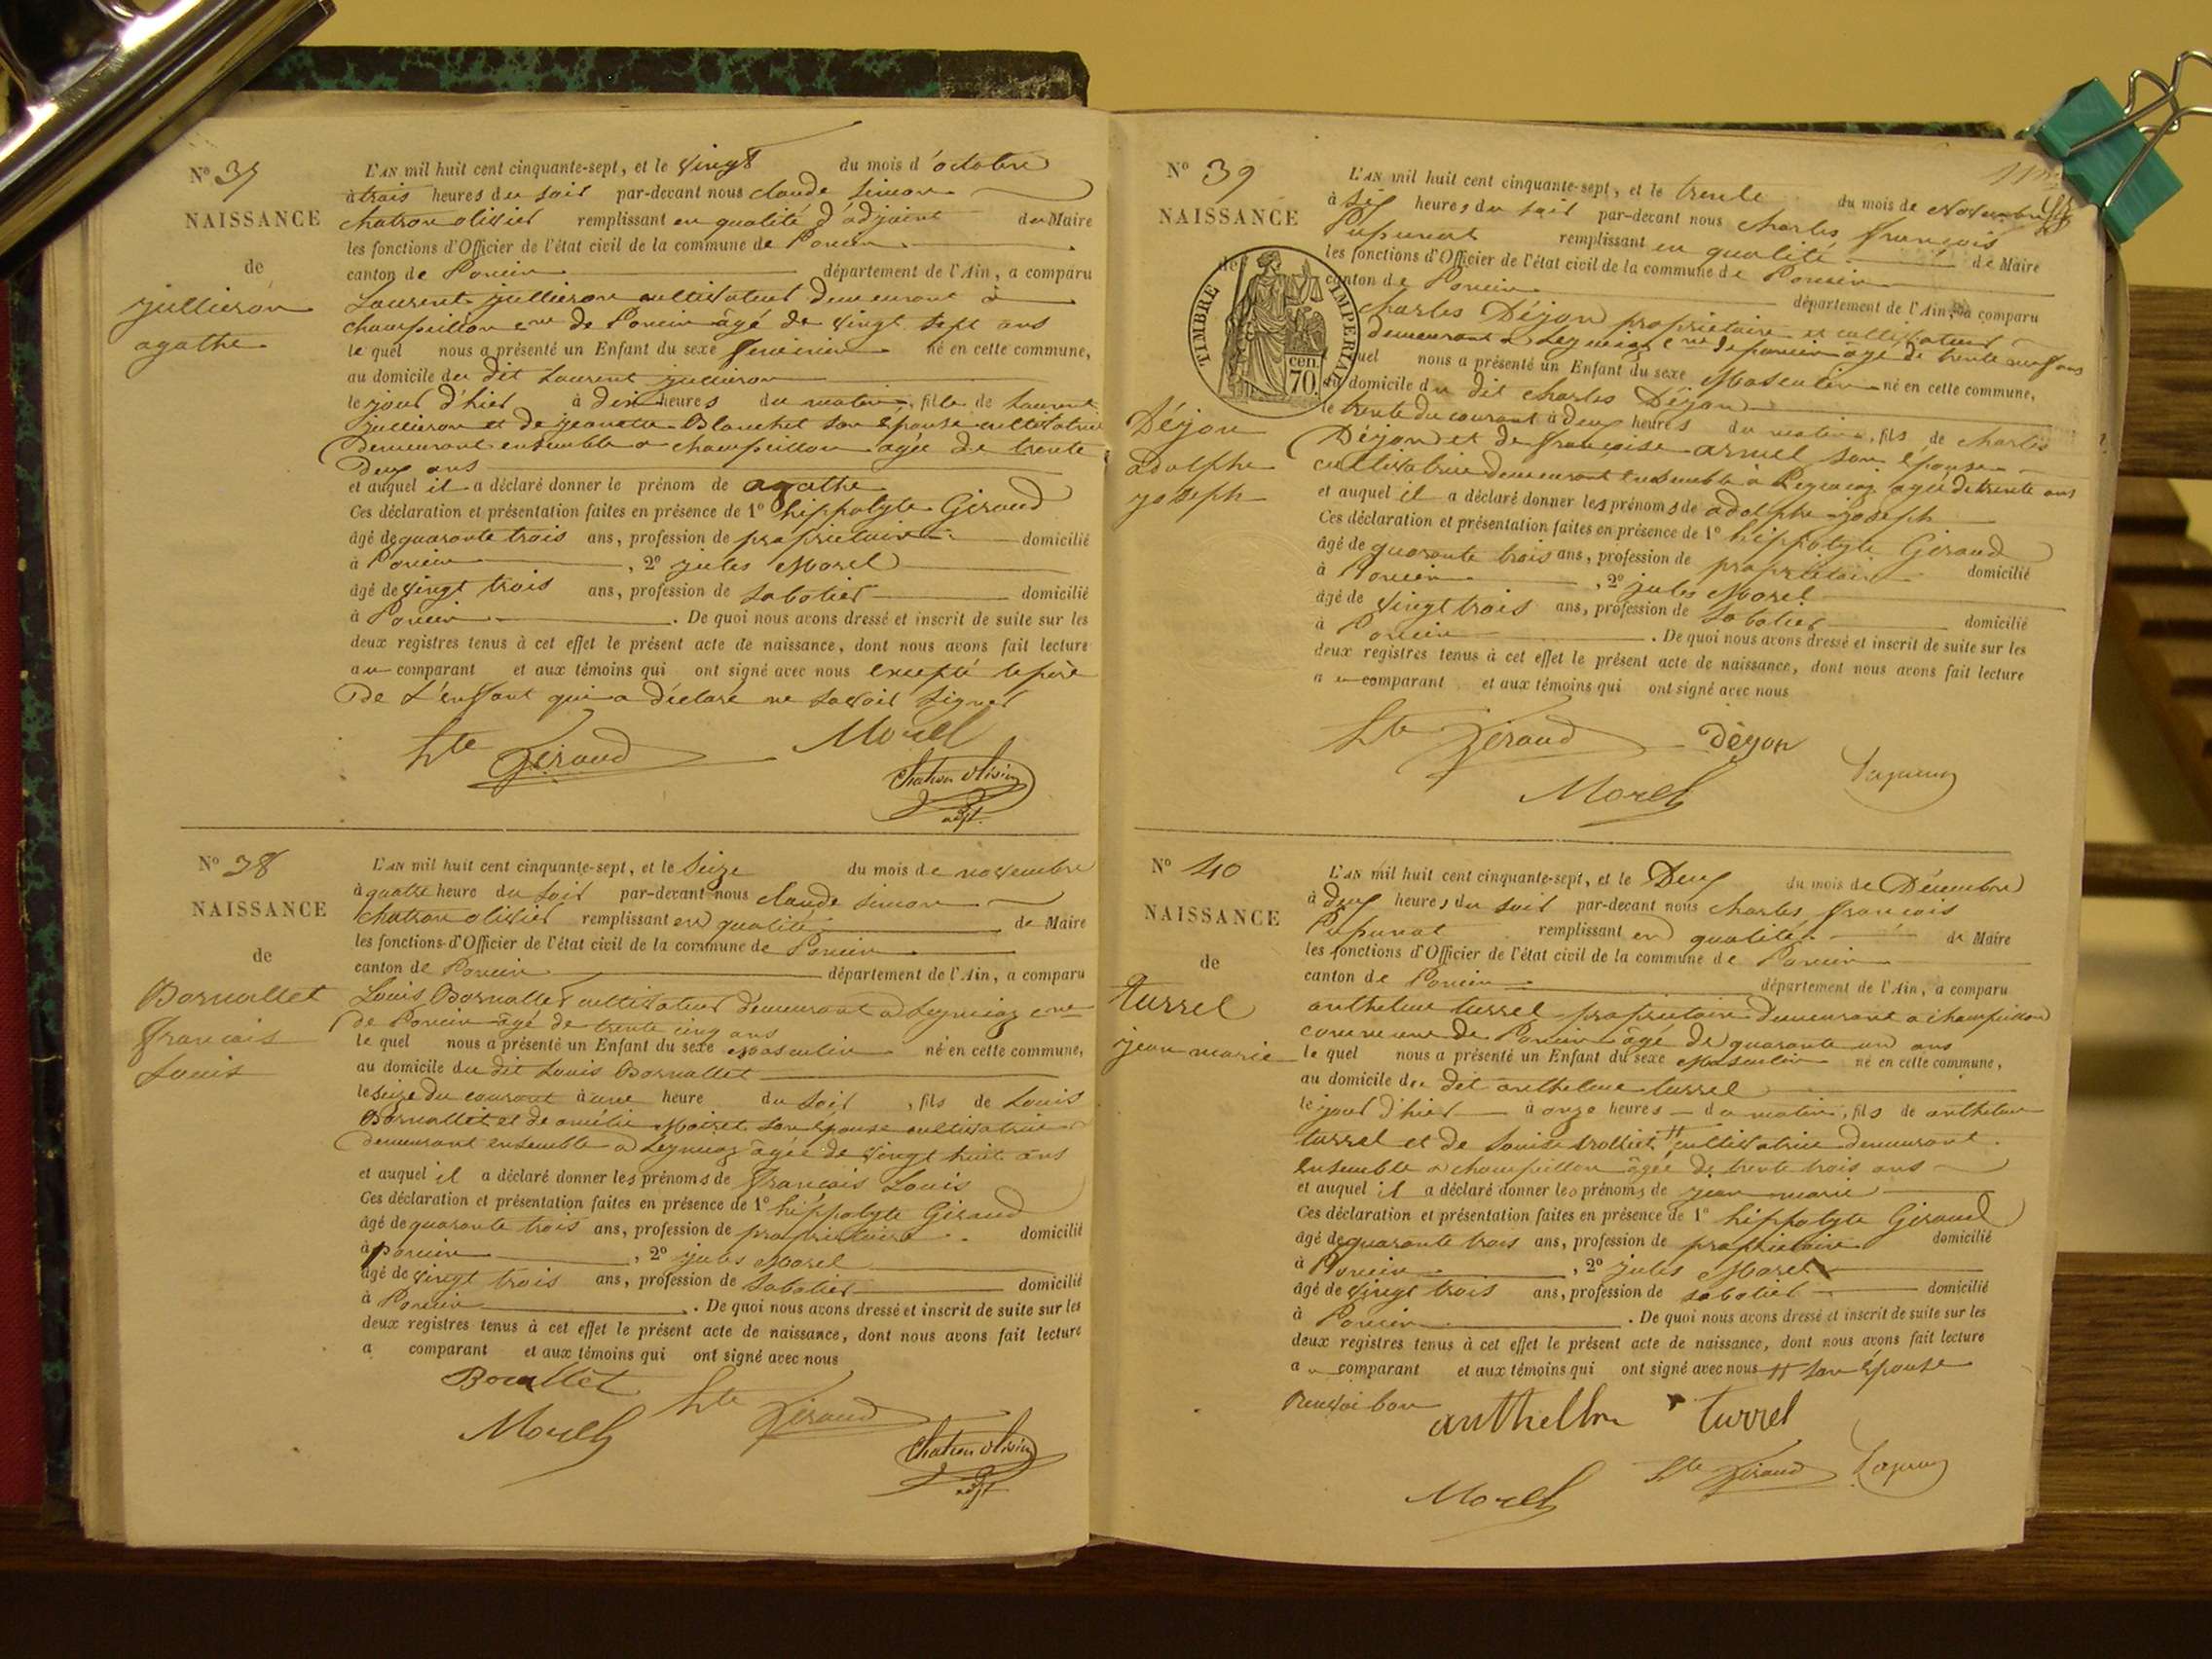 N° 37
NAISSANCE
de
jullieron
agathe
L'AN mil huit cent cinquante-sept, et le vingt du mois d'octobre
à trois heures du soir par-devant nous claude simon
chatron olivier remplissant en qualité d'adjoint du Maire
les fonctions d'Officier de l'état civil de la commune de Poncin
canton de Poncin département de l'Ain, a comparu
Laurent jullieron cultivateur demeurant à
champeillon cne de Poncin âgé de vingt sept ans
le quel nous a présenté un Enfant du sexe féminin né en cette commune,
au domicile du dit Laurent jullieron
le jour d'hier à dix heures du matin, fille de Laurent
jullieron et de jeanette Blanchet son épouse cultivatrice
Demeurant ensemble a champeillon agée de trente
Deux ans
et auquel il a déclaré donner le prénom de agathe
Ces déclaration et présentation faites en présence de 1° hippolyte Giraud
âgé de quarante trois ans, profession de propriétaire domicilié
à Poncin, 2° jules Morel
âgé de vingt trois ans, profession de sabotier domicilié
à Poncin. De quoi nous avons dressé et inscrit de suite sur les
deux registres tenus à cet effet le présent acte de naissance, dont nous avons fait lecture
au comparant et aux témoins qui ont signé avec nous excepté le père
De L'enfant qui a déclaré ne savoir signer
hte Giraud Morel
Chatron olivier
adjt.
N° 38
NAISSANCE
de
Bornallet
francois
Louis
L'AN mil huit cent cinquante-sept, et le seize du mois de novembre
à quatre heure du soir par-devant nous claude simon
chatron olivier remplissant en qualité de Maire
les fonctions d'Officier de l'état civil de la commune de Poncin
canton de Poncin département de l'Ain, a comparu
Louis Bornallet cultivateur demeurant a Leymiaz cne
de Poncin âgé de trente cinq ans
le quel nous a présenté un Enfant du sexe Masculin né en cette commune,
au domicile du dit Louis Bornallet
le seize du courant à une heure du soir, fils de Louis
Bornallet et de amélie Moiret son épouse cultivatrice
demeurant ensemble a Leymiaz âgée de vingt huit ans
et auquel il a déclaré donner les prénoms de francois Louis
Ces déclaration et présentation faites en présence de 1° hippolyte Giraud
âgé de quarante trois ans, profession de propriétaire domicilié
à poncin, 2° jules Morel
âgé de vingt trois ans, profession de sabotier domicilié
à Poncin. De quoi nous avons dressé et inscrit de suite sur les
deux registres tenus à cet effet le présent acte de naissance, dont nous avons fait lecture
a comparant et aux témoins qui ont signé avec nous
Bornallet hte Giraud
Morel
Chatron olivier
adjt
N° 39
NAISSANCE
de
TIMBRE IMPERIAL
70 cen.
Déjon
adolphe
joseph
L'AN mil huit cent cinquante-sept, et le trente du mois de Novembre
à six heures du soir par-devant nous charles françois
Pupunat remplissant en qualité de Maire
les fonctions d'Officier de l'état civil de la commune de Poncin
canton de Poncin département de l'Ain, a comparu
Charles Déjon propriétaire et cultivateur
demeurant a Leymiaz cne de poncin âgé de trente neuf ans
quel nous a présenté un Enfant du sexe Masculin né en cette commune,
au domicile du dit charles Déjon
le trente du courant à deux heures du matin, fils de charles
Déjon et de françoise armel son épouse
cultivatrice demeurant ensemble à Leymiaz agée de trente ans
et auquel il a déclaré donner les prénoms de adolphe joseph
Ces déclaration et présentation faites en présence de 1° hippolyte Giraud
âgé de quarante trois ans, profession de propriétaire domicilié
à Poncin, 2° jules Morel
âgé de vingt trois ans, profession de sabotier domicilié
à Poncin. De quoi nous avons dressé et inscrit de suite sur les
deux registres tenus à cet effet le présent acte de naissance, dont nous avons fait lecture
au comparant et aux témoins qui ont signé avec nous
hte Giraud Déjon
Morel
N° 40
NAISSANCE
de
turrel
jean marie
L'AN mil huit cent cinquante-sept, et le Deux du mois de Décembre
à deux heures du soir par-devant nous charles françois
Pupunat remplissant en qualité de Maire
les fonctions d'Officier de l'état civil de la commune de Poncin
canton de Poncin département de l'Ain, a comparu
anthelme turrel propriétaire Demeurant a champeillon
commune de Poncin âgé de quarante un ans
le quel nous a présenté un Enfant du sexe Masculin né en cette commune,
au domicile du dit anthelme turrel
le jour d'hier à onze heures du matin, fils de anthelme
turrel et de Louise trolliet # cultivatrice demeurant
Ensemble a champeillon âgée de trente trois ans
et auquel il a déclaré donner les prénoms de jean marie
Ces déclaration et présentation faites en présence de 1° hippolyte Giraud
âgé de quarante trois ans, profession de propriétaire domicilié
à Poncin, 2° jules Morel
âgé de vingt trois ans, profession de sabotier domicilié
à Poncin. De quoi nous avons dressé et inscrit de suite sur les
deux registres tenus à cet effet le présent acte de naissance, dont nous avons fait lecture
au comparant et aux témoins qui ont signé avec nous # son Epouse
Renvoi bon
anthelme turrel
Morel hte Giraud